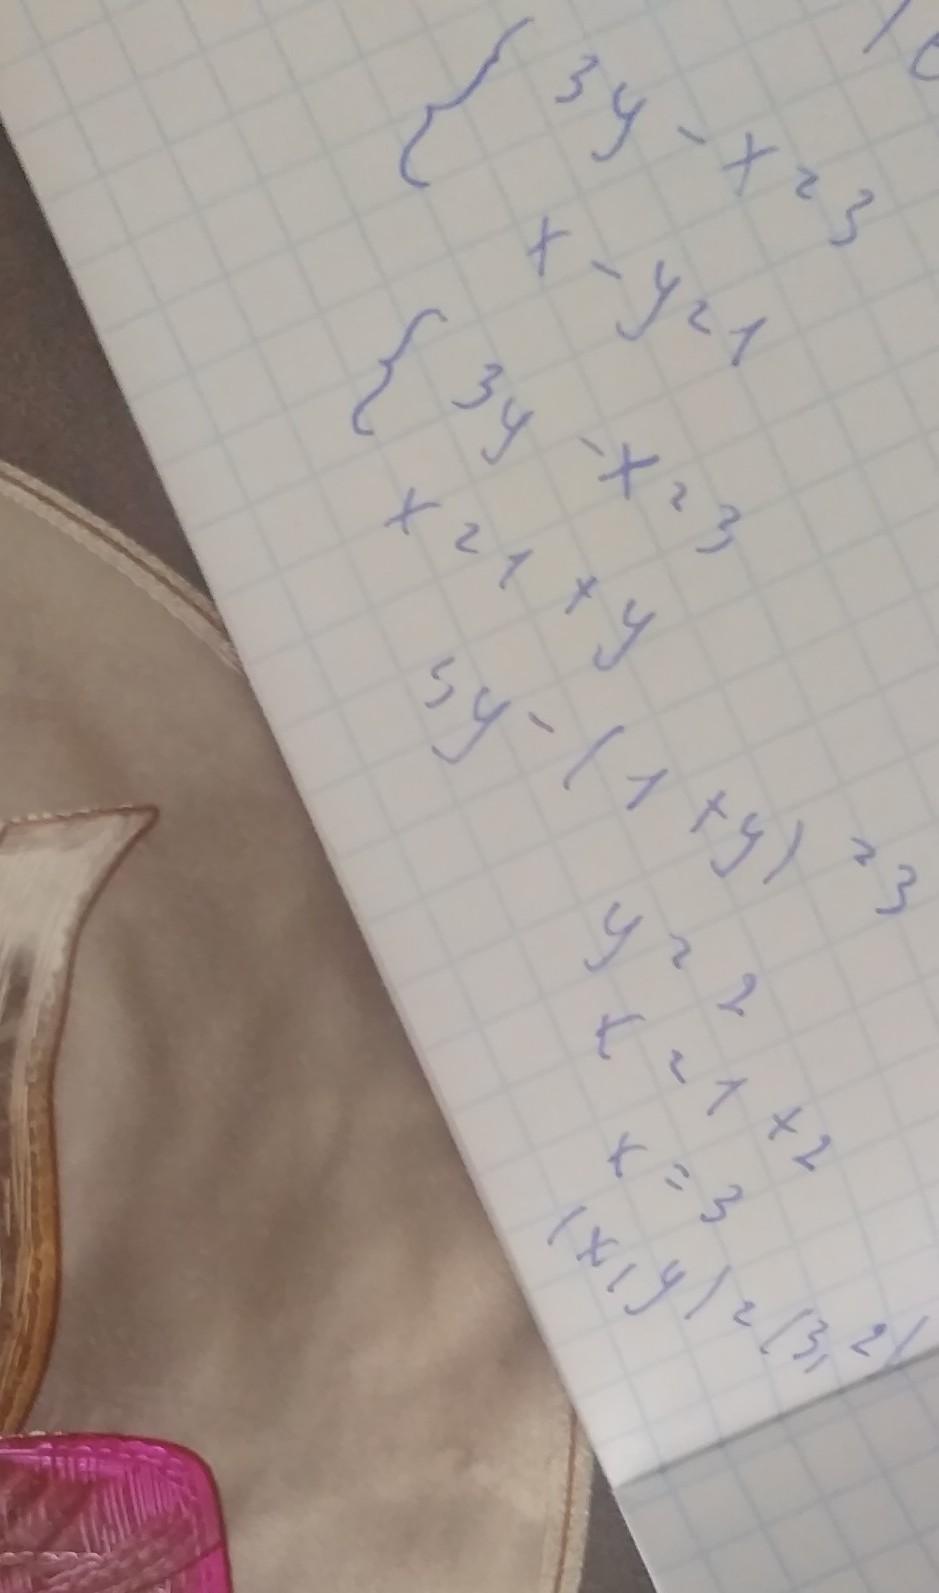 { 3y - x = 3
x - y = 1
{ 3y - x = 3
x = 1 + y
3y - (1 + y) = 3
y = 2
x = 1 + 2
x = 3
(x, y) = (3, 2)